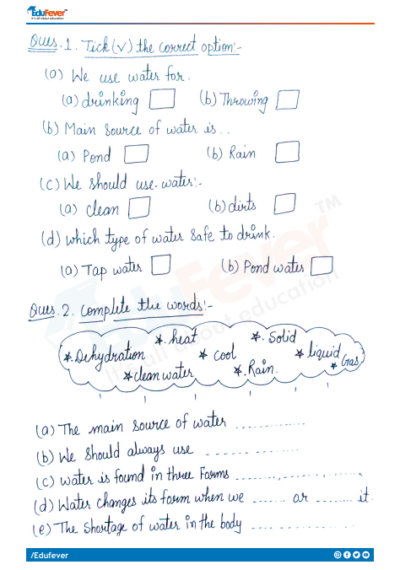 EduFever
Ques.1. Tick(✓) the correct option:-
(a) We use water for.
(a) drinking (b) Throwing
(b) Main source of water is..
(a) Pond (b) Rain
(c) We should use water:-
(a) clean (b) dirts
(d) which type of water safe to drink.
(a) Tap water (b) Pond water
EduFever TM
It's all about education
Ques.2. Complete the words:-
*.heat *. Solid
*.Dehydration * cool * liquid * Gas
*clean water *.Rain.
(a) The main source of water .............
(b) We should always use .............
(c) water is found in three Forms .......,.............
(d) Water changes its form when we ....... or ....... it.
(e) The Shortage of water in the body .... .............
/Edufever